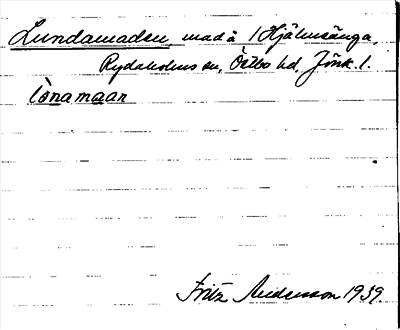 Lundamaden, mad å 1 Hjälmsänga,
Rydaholms sn, Östbo hd. Jönk. l.
lònamaan
Fritz Andersson 1939.